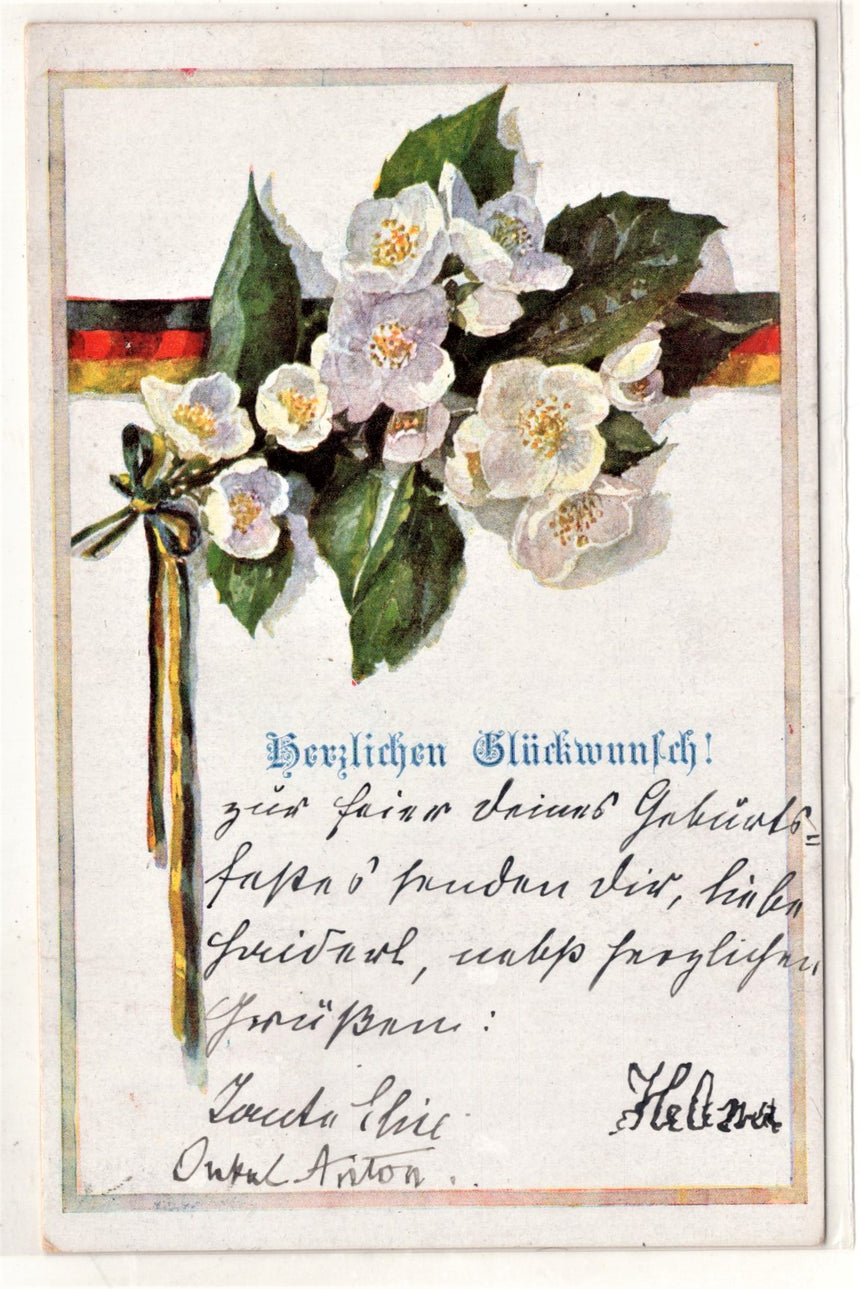 Herzlichen Glückwunsch!
zur Feier deines Geburts=
festes senden dir, liebe
nebst herzlichen
Grüßen:
Tante Elise
Onkel Anton.
Helena